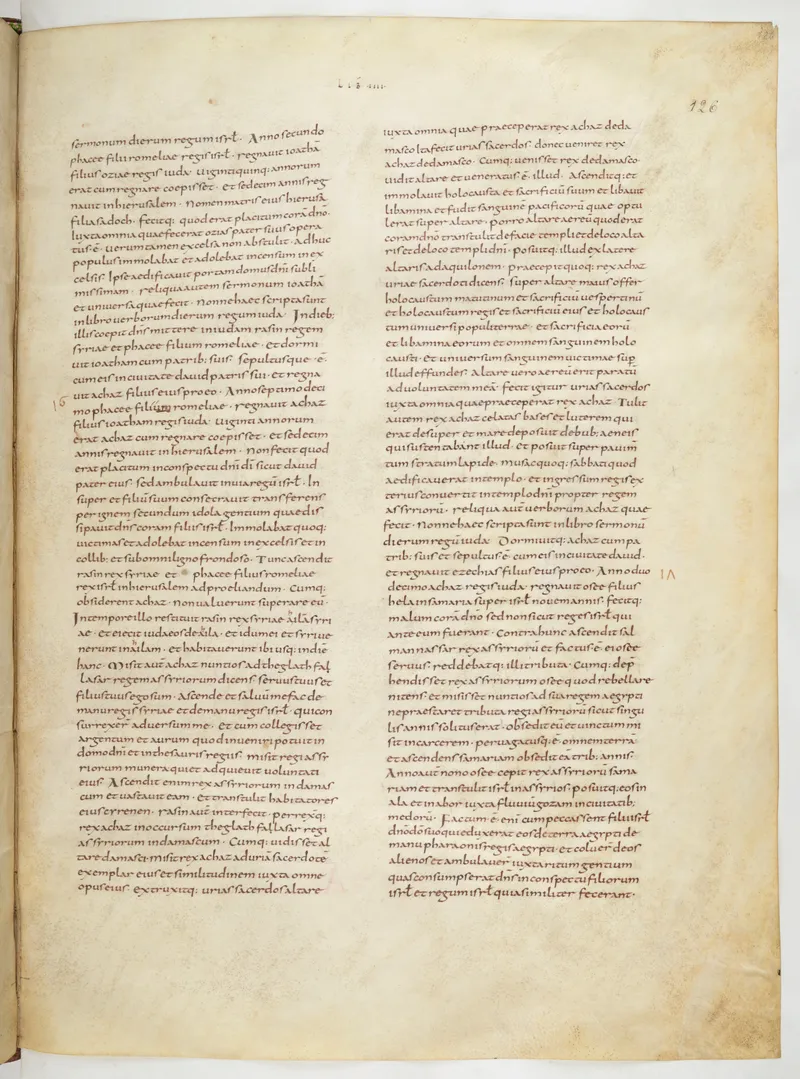 Lib IIII
126
sermonum dierum regum isrł. Anno secundo
phacee filii romeliae regis isrł. regnauit ioathā
filius oziae regis iuda. Uiginti quinq; annorum
erat cum regnare coepisset. et sedecim annis reg
nauit in hierusalem. Nomen matris eius hierusa
filia sadoch. fecitq; quod erat placitum corā dnō.
Iuxta omnia quae fecerat ozias pater suus opera
tus ē. uerum tamen excelsa non abstulit. adhuc
populus immolabat et adolebat incensum in ex
celsis. Ipse aedificauit portam domus dnī subli
missimam. reliqua autem sermonum ioathā
et uniuersa quae fecit. nonne haec scripta sunt
in libro uerborum dierum regum iuda. In dieb;
illis coepit dns mittere in iudam rasin regem
syriae et phacee filium romeliae. et dormi
uit ioatham cum patrib; suis. sepultusque ē
cum eis in ciuitate dauid patris sui. et regna
uit achaz filius eius pro eo. Anno septimo deci
16
mo phacee filii romeliae. regnauit achaz
filius ioatham regis iuda. uiginti annorum
erat achaz cum regnare coepisset. et sedecim
annis regnauit in hierusalem. Non fecit quod
erat placitum in conspectu dnī dī sicut dauid
pater eius. sed ambulauit in uia regū isrł. In
super et filiū suum consecrauit transferens
per ignem secundum idola gentium quae dis
sipauit dns coram filiis isrł. Immolabat quoq;
uictimas et adolebat incensum in excelsis et in
collib; et sub omni ligno frondoso. Tunc ascendit
rasin rex syriae et phacee filius romeliae
rex isrł in hierusalem ad proeliandum. Cumq;
obsiderent achaz. non ualuerunt superare eū.
In tempore illo restituit rasin rex syriae ailā syri
ae. et eiecit iudaeos de aila. et idumei et syri ue
nerunt in ailam. et habitauerunt ibi usq; in diē
hanc. Misit aut achaz nuntios ad theglath fal
lasar regem assyriorum dicens seruus tuus et
filius tuus ego sum. Ascende et saluū me fac de
manu regis syriae et de manu regis isrł. qui con
surrexer aduersum me. et cum collegisset
argentum et aurum quod inueniri potuit in
domo dnī et in thesauris regiis. misit regi assy
riorum munera qui et adquieuit uoluntati
eius. Ascendit enim rex assyriorum in damas
cum et uastauit eam. et transtulit habitatores
eius cyrenen. rasin aut interfecit. perrexitq;
rex achaz in occursum theglath fallasar regi
assyriorum in damascum. Cumq; uidisset al
tare damasci. misit rex achaz ad uriā sacerdotē
exemplar eius et similitudinem iuxta omne
opus eius. extruxitq; urias sacerdos altare
iuxta omnia quae praeceperat rex achaz de da
masco. Ita fecit urias sacerdos donec ueniret rex
achaz de damasco. Cumq; uenisset rex de damasco.
uidit altare et ueneratus ē illud. Ascenditq; et
immolauit holocausta et sacrificiū suum et libauit
libamina et fudit sanguinē pacificorū quae optu
lerat super altare. porro altare aereū quod erat
coram dnō transtulit de facie templi et de loco alta
ris et de loco templi dnī. posuitq; illud ex latere
altaris ad aquilonem. praecepit quoq; rex achaz
uriae sacerdoti dicens. super altare maius offer
holocaustum matutinum et sacrificiū uespertinū
et holocaustum regis et sacrificiū eius et holocaus
tum uniuersi populi terrae. et sacrificia eorū
et libamina eorum et omnem sanguinem holo
causti. et uniuersum sanguinem uictimae sup
illud effundes. Altare uero aereū erit paratū
ad uoluntatem meā. fecit igitur urias sacerdos
iuxta omnia quae praeceperat rex achaz. Tulit
autem rex achaz celatas bases et luterem qui
erat desuper et mare deposuit de bub; aeneis
qui sustentabant illud. et posuit super pauim
tum stratum lapide. musac quoq; sabbati quod
aedificauerat in templo. et ingressum regis ex
terius conuertit in templo dnī propter regem
assyriorū. reliqua aut uerborum achaz quae
fecit. nonne haec scripta sunt in libro sermonū
dierum regū iuda. Dormiuitq; achaz cum pa
trib; suis et sepultus ē cum eis in ciuitate dauid.
et regnauit ezechias filius eius pro eo. Anno duo
decimo achaz regis iuda. regnauit osee filius
hela in samaria super isrł nouem annis. fecitq;
malum corā dnō sed non sicut reges isrł qui
ante eum fuerant. Contra hunc ascendit sal
mannassar rex assyriorum et factus ē ei osee
seruus reddebatq; illi tributa. Cumq; depre
hendisset rex assyriorum osee quod rebellare
nitens et misisset nuntios ad sua regem aegypti
ne praestaret tributa regi assyriorū sicut singu
lis annis solitus erat. obsedit eū et uinctum mi
sit in carcerem. peruagatusq; ē omnem terrā
et ascendens samariam obsedit eā trib; annis.
Anno aut nono osee. cepit rex assyriorū sama
riam et transtulit isrł in assyrios. posuitq; eos in
ala et in abor iuxta fluuiū gozam in ciuitatib;
medorū. Factum ē enī cum peccassent filii isrł
dnō dō suo qui eduxerat eos de terra aegypti de
manu pharaonis regis aegypti. et coluer deos
alienos et ambulauer iuxta ritum gentium
quas consumpserat dns in conspectu filiorum
isrł et regum isrł quia similiter fecerant.